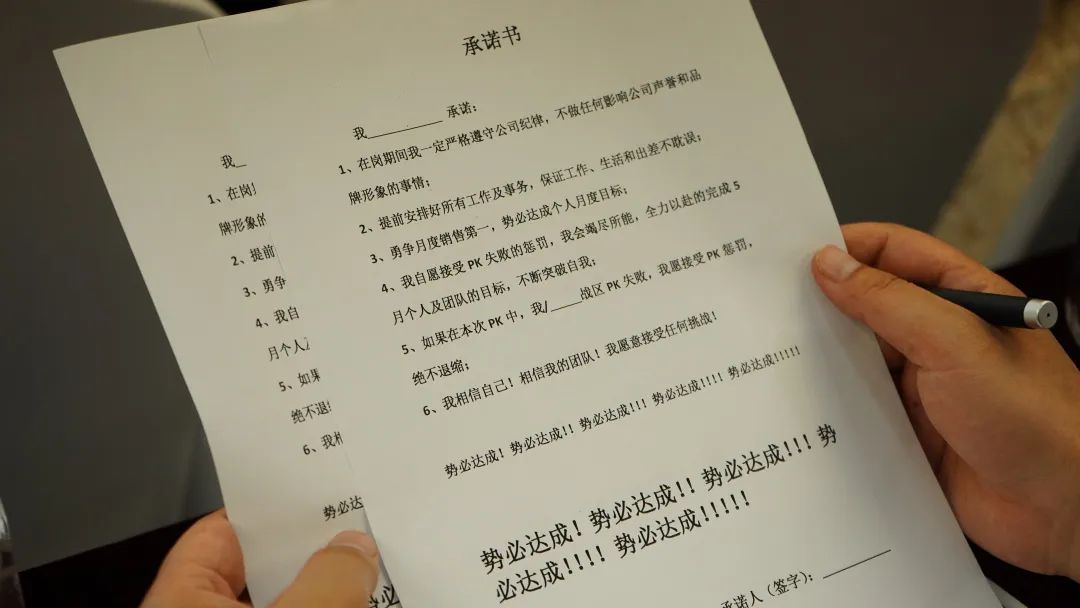 承诺书
我_________ 承诺：
1、在岗期间我一定严格遵守公司纪律，不做任何影响公司声誉和品
牌形象的事情；
2、提前安排好所有工作及事务，保证工作、生活和出差不耽误；
3、勇争月度销售第一，势必达成个人月度目标；
4、我自愿接受 PK 失败的惩罚，我会竭尽所能，全力以赴的完成 5
月个人及团队的目标，不断突破自我；
5、如果在本次 PK 中，我/_____战区 PK 失败，我愿接受 PK 惩罚，
绝不退缩；
6、我相信自己！相信我的团队！我愿意接受任何挑战！
势必达成！势必达成!！势必达成!!！势必达成!!!！势必达成!!!!!
势必达成！势必达成!！势必达成!!！势
必达成!!!！势必达成!!!!!
承诺人（签字）：_________
我_
1、在岗
牌形象的
2、提前
3、勇争
4、我自
月个人
5、如果
绝不退
6、我相
势必达
势必